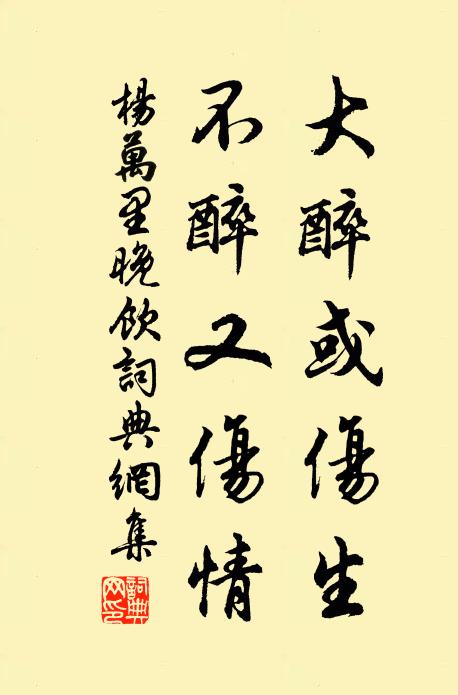 大醉或傷生
不醉又傷情
楊萬里晚飲詞典網集
詞典
网印